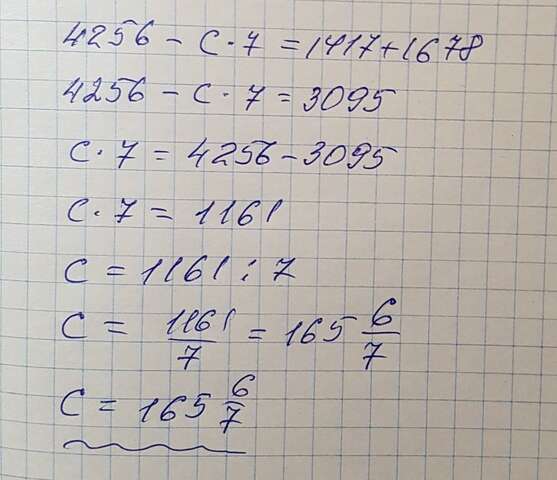 4256 - c · 7 = 1417 + 1678
4256 - c · 7 = 3095
c · 7 = 4256 - 3095
c · 7 = 1161
c = 1161 : 7
c = 1161/7 = 165 6/7
c = 165 6/7